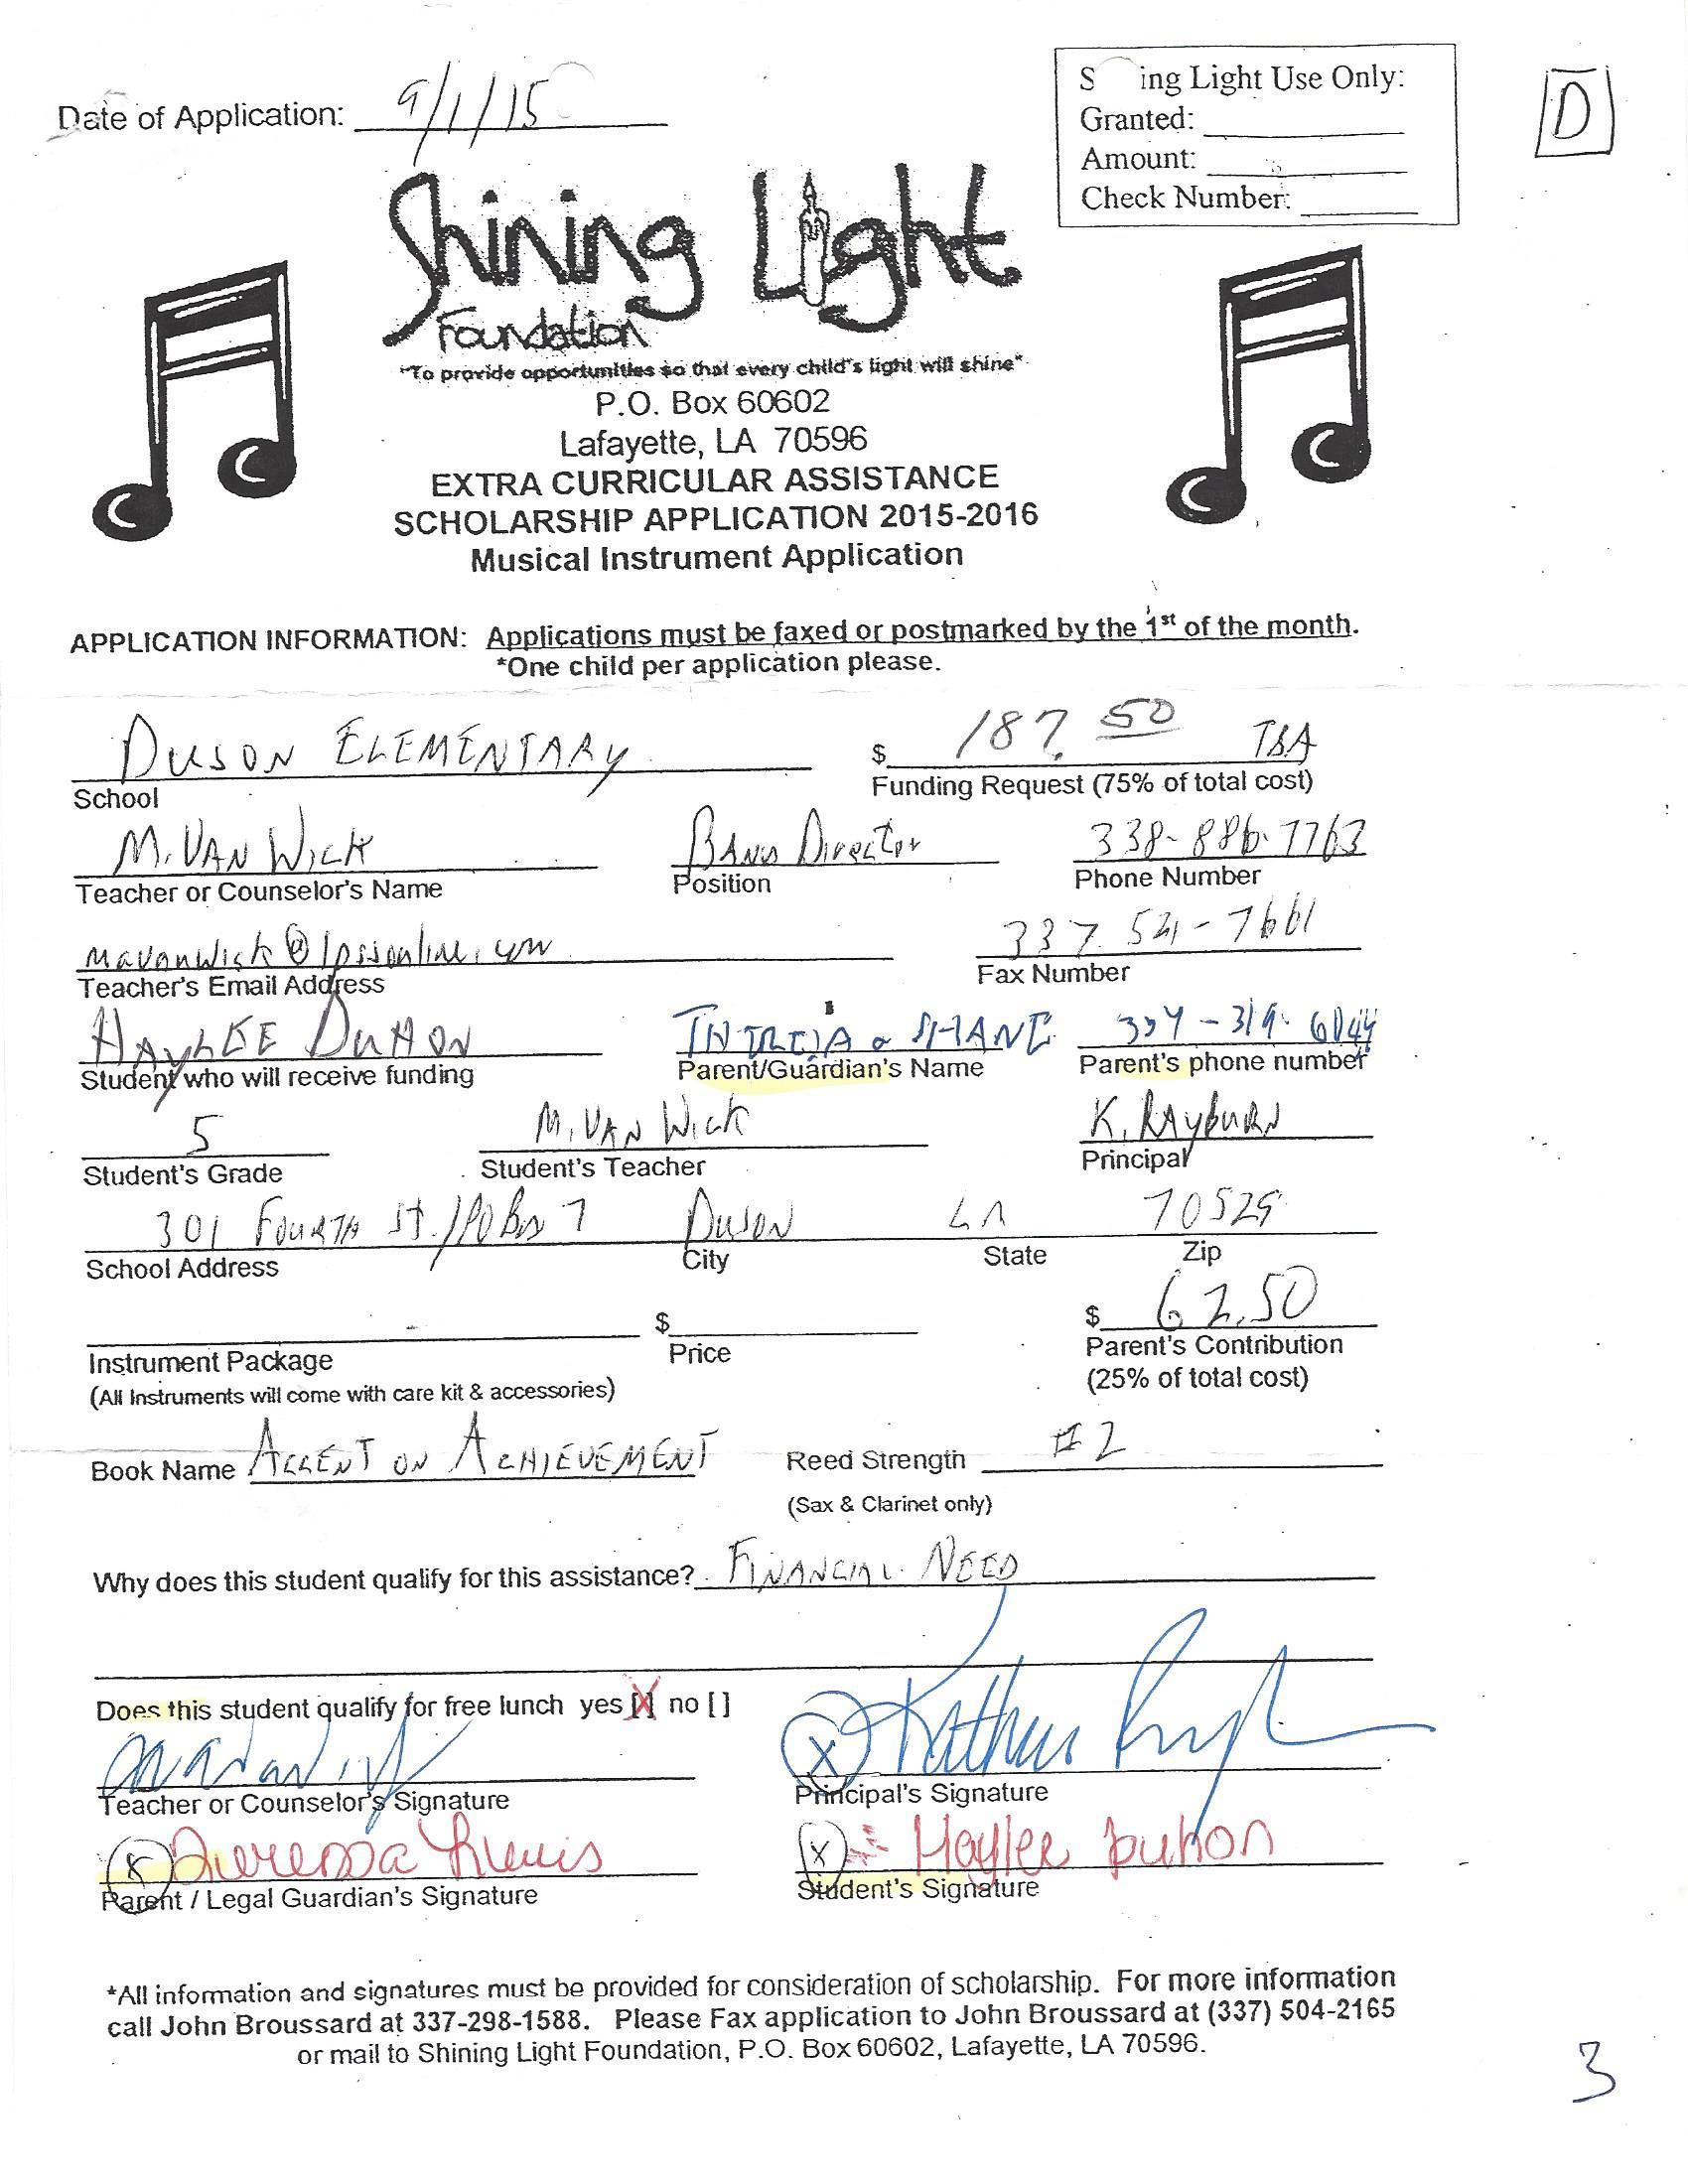 Date of Application: 9/1/15
S ing Light Use Only:
Granted:
Amount:
Check Number:
D
Shining Light
Foundation
"To provide opportunities so that every child's light will shine"
P.O. Box 60602
Lafayette, LA 70596
EXTRA CURRICULAR ASSISTANCE
SCHOLARSHIP APPLICATION 2015-2016
Musical Instrument Application
APPLICATION INFORMATION: Applications must be faxed or postmarked by the 1st of the month.
*One child per application please.
DUSON ELEMENTARY $ 187.50
School Funding Request (75% of total cost)
M. VAN WICK BAND Director 338-886-7763
Teacher or Counselor's Name Position Phone Number
mavanwick@lpssonline.com 337
Teacher's Email Address Fax Number
HAYLEE DUHON & SHANE
Student who will receive funding Parent/Guardian's Name Parent's phone number
5 M. VAN WICK K. RAYBURN
Student's Grade Student's Teacher Principal
301 FOURTH ST./PO Box 7 DUSON LA 70529
School Address City State Zip
$ $ 62.50
Instrument Package Price Parent's Contribution
(All Instruments will come with care kit & accessories) (25% of total cost)
Book Name ACCENT ON ACHIEVEMENT Reed Strength #2
(Sax & Clarinet only)
Why does this student qualify for this assistance? FINANCIAL NEED
Does this student qualify for free lunch yes [X] no [ ]
X
Teacher or Counselor's Signature Principal's Signature
X X Haylee Duhon
Parent / Legal Guardian's Signature Student's Signature
*All information and signatures must be provided for consideration of scholarship. For more information
call John Broussard at 337-298-1588. Please Fax application to John Broussard at (337) 504-2165
or mail to Shining Light Foundation, P.O. Box 60602, Lafayette, LA 70596.
3